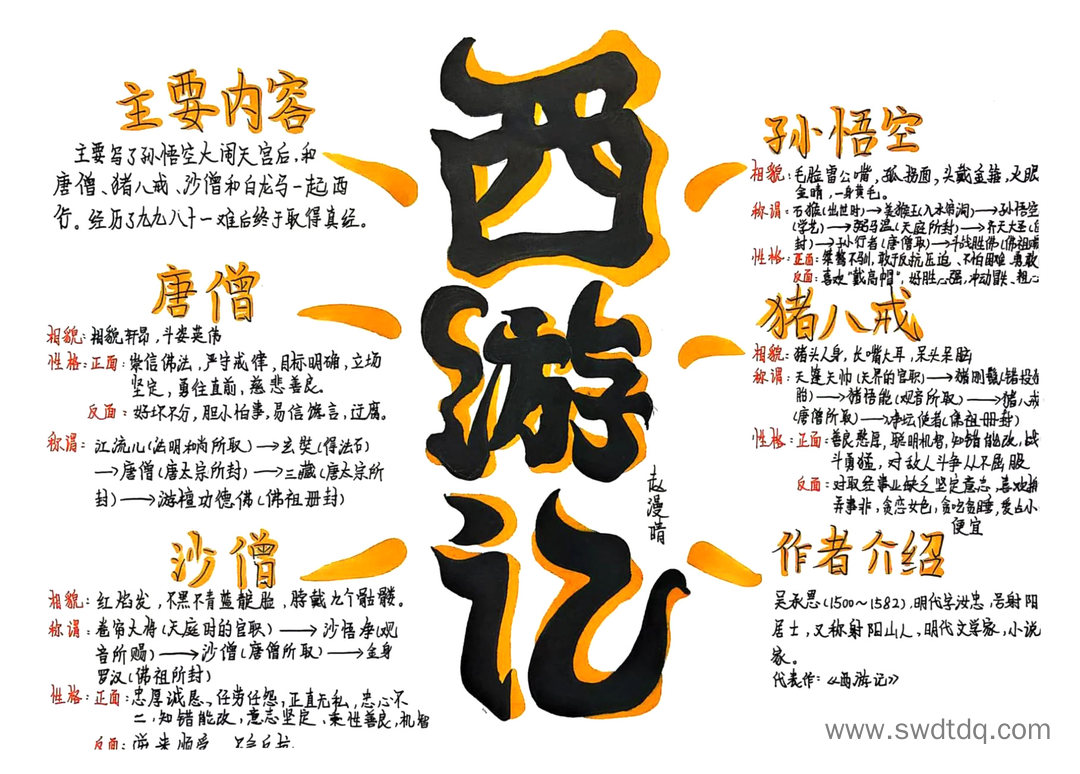 西游记
赵漫晴
主要内容
主要写了孙悟空大闹天宫后，和
唐僧、猪八戒、沙僧和白龙马一起西
行。经历了九九八十一难后终于取得真经。
唐僧
相貌：相貌轩昂，斗姿英伟
性格：正面：崇信佛法，严守戒律，目标明确，立场
坚定，勇往直前，慈悲善良。
反面：好坏不分，胆小怕事，易信馋言，迂腐。
称谓：江流儿(法明和尚所取)→玄奘(得法名)
→唐僧(唐太宗所封)→三藏(唐太宗所
封)→游檀功德佛(佛祖册封)
沙僧
相貌：红焰发，不黑不青蓝靛脸，脖戴九个骷髅。
称谓：卷帘大将(天庭时的官职)→沙悟净(观
音所赐)→沙僧(唐僧所取)→金身
罗汉(佛祖所封)
性格：正面：忠厚诚恳、任劳任怨，正直无私，忠心不
二，知错能改，意志坚定、秉性善良，机智
反面：逆来顺受
孙悟空
相貌：毛脸雷公嘴，孤拐面，头戴金箍，火眼
金睛，一身黄毛。
称谓：石猴(出世时)→美猴王(入水帘洞)→孙悟空
(学艺)→弼马温(天庭所封)→齐天大圣(自
封)→孙行者(唐僧取)→斗战胜佛(佛祖
性格：正面：桀骜不驯，敢于反抗压迫、不怕困难、勇敢
反面：喜欢"戴高帽"，好胜心强，冲动冒失、粗心
猪八戒
相貌：猪头人身，长嘴大耳，呆头呆脑
称谓：天蓬天帅(天界的官职)→猪刚鬣(错投
胎)→猪悟能(观音所取)→猪八戒
(唐僧所取)→净坛使者(佛祖册封)
性格：正面：善良憨厚，聪明机智，知错能改，战
斗勇猛，对敌人斗争从不屈服
反面：对取经事业缺乏坚定意志，喜欢
弄事非，贪恋女色，贪吃贪睡，爱占小
便宜
作者介绍
吴承恩(1500~1582)，明代字汝忠，号射阳
居士，又称射阳山人，明代文学家，小说
家。
代表作：《西游记》
www.swdtdq.com